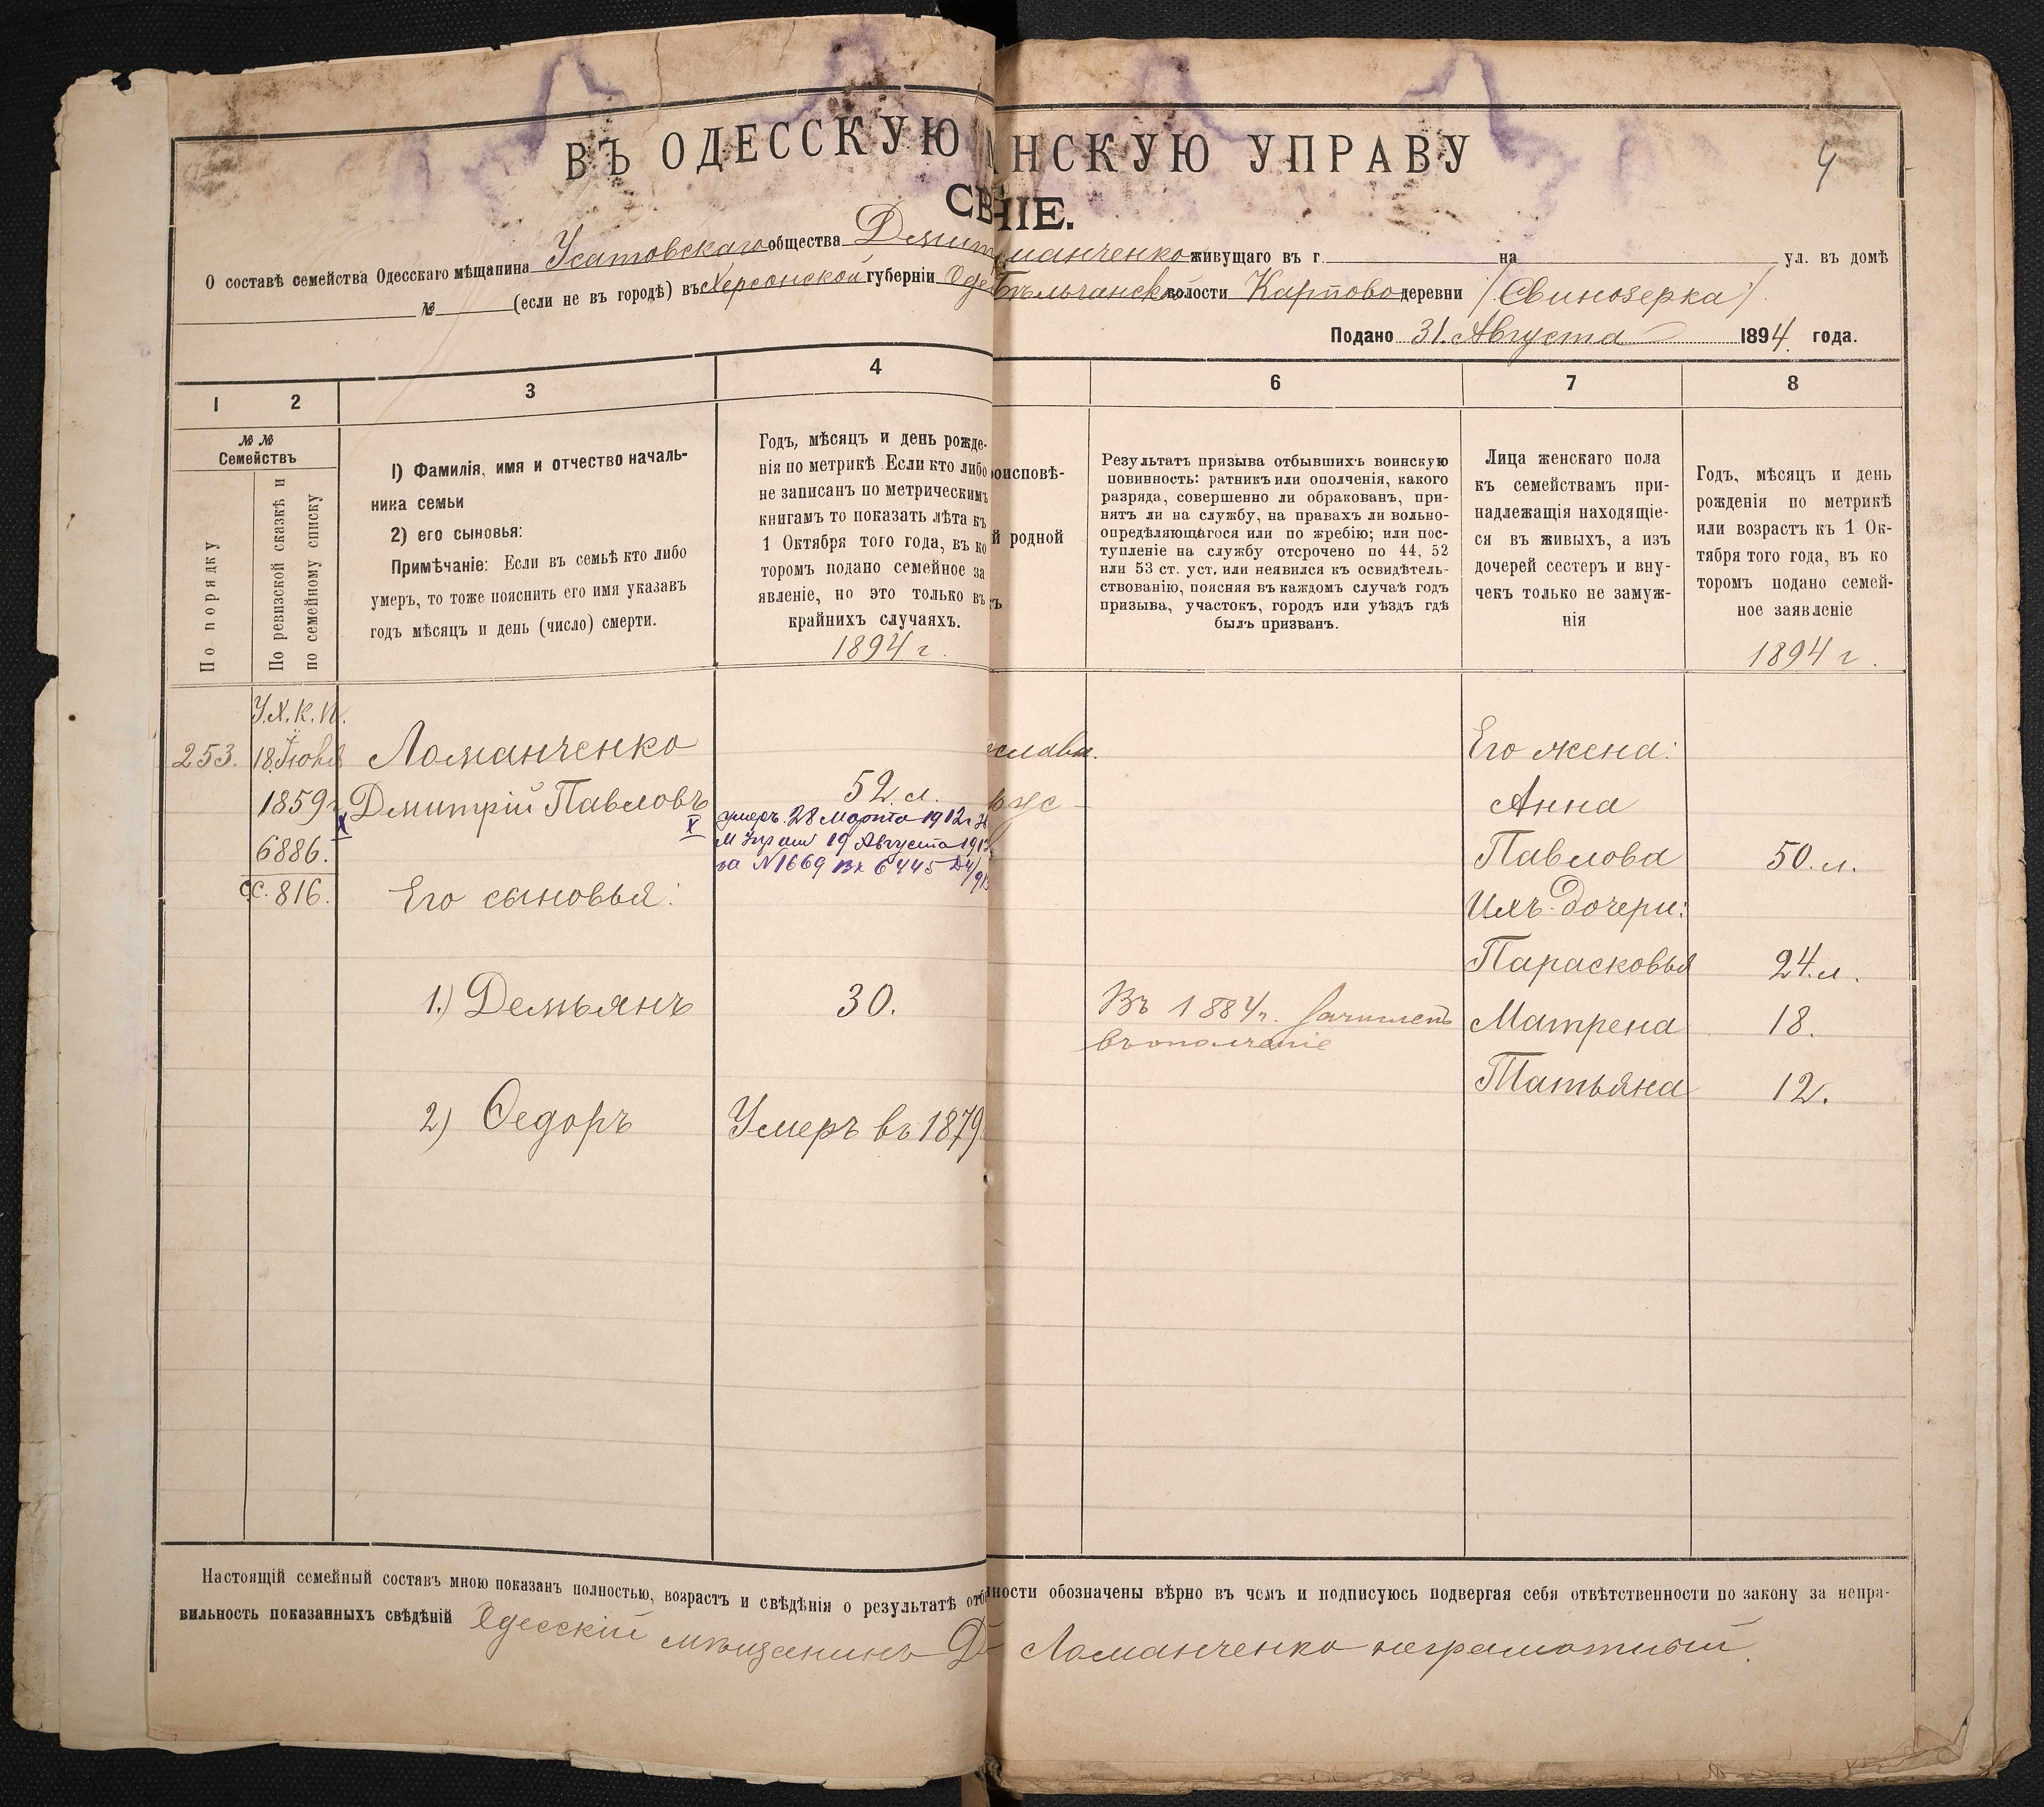 ВЪ ОДЕССКУЮ НСКУЮ УПРАВУ
4
СВ НІЕ.
О составѣ семейства Одесскаго мѣщанина Усатовскаго общества Дмит манченко живущаго въ г. на ул. въ домѣ
№ (если не въ городѣ) въ Херсонской губерніи Оде Бѣльчанской волости Карпово деревни /Свинозерка/
Подано 31. Августа 1894 года.
1 2 3 4 6 7 8
№ №
Семействъ
По порядку
По ревизской сказкѣ и
по семейному списку
1) Фамилія, имя и отчество началь-
ника семьи
2) его сыновья:
Примѣчаніе: Если въ семьѣ кто либо
умеръ, то тоже пояснить его имя указавъ
годъ мѣсяцъ и день (число) смерти.
Годъ, мѣсяцъ и день рожде-
нія по метрикѣ. Если кто либо
не записанъ по метрическимъ
книгамъ то показать лѣта къ
1 Октября того года, въ ко
торомъ подано семейное за
явленіе, но это только въ
крайнихъ случаяхъ.
1894 г.
роисповѣ-
й родной
ъ
Результатъ призыва отбывшихъ воинскую
повинность: ратникъ или ополченія, какого
разряда, совершенно ли обракованъ, при-
нятъ ли на службу, на правахъ ли вольно-
опредѣляющагося или по жребію; или пос-
тупленіе на службу отсрочено по 44, 52
или 53 ст. уст. или неявился къ освидѣтель-
ствованію, поясняя въ каждомъ случаѣ годъ
призыва, участокъ, городъ или уѣздъ гдѣ
былъ призванъ.
Лица женскаго пола
къ семействамъ при-
надлежащія находящіе-
ся въ живыхъ, а изъ
дочерей сестеръ и вну-
чекъ только не замуж-
нія
Годъ, мѣсяцъ и день
рожденія по метрикѣ
или возрастъ къ 1 Ок-
тября того года, въ ко
торомъ подано семей-
ное заявленіе
1894 г.
У.Х.К.П.
253. 18 Іюня Ломанченко славн. Его жена:
1859 г. Дмитрій Павловъ 52 л. Анна
X X умеръ 28 Марта 1912 г
6886. 19 Августа 191 Павлова 50 л.
за № 1669 Вх 6445
с.с. 816. Его сыновья: Ихъ дочери:
Парасковья 24 л.
1.) Демьянъ 30. Въ 1884 г. зачисленъ Матрена 18.
въ ополченіе
Татьяна 12.
2) Федоръ Умеръ въ 1879
Настоящій семейный составъ мною показанъ полностью, возрастъ и свѣдѣнія о результатѣ отб нности обозначены вѣрно въ чемъ и подписуюсь подвергая себя отвѣтственности по закону за непра-
вильность показанныхъ свѣдѣній Одесскій мѣщанинъ Д Ломанченко неграмотный.